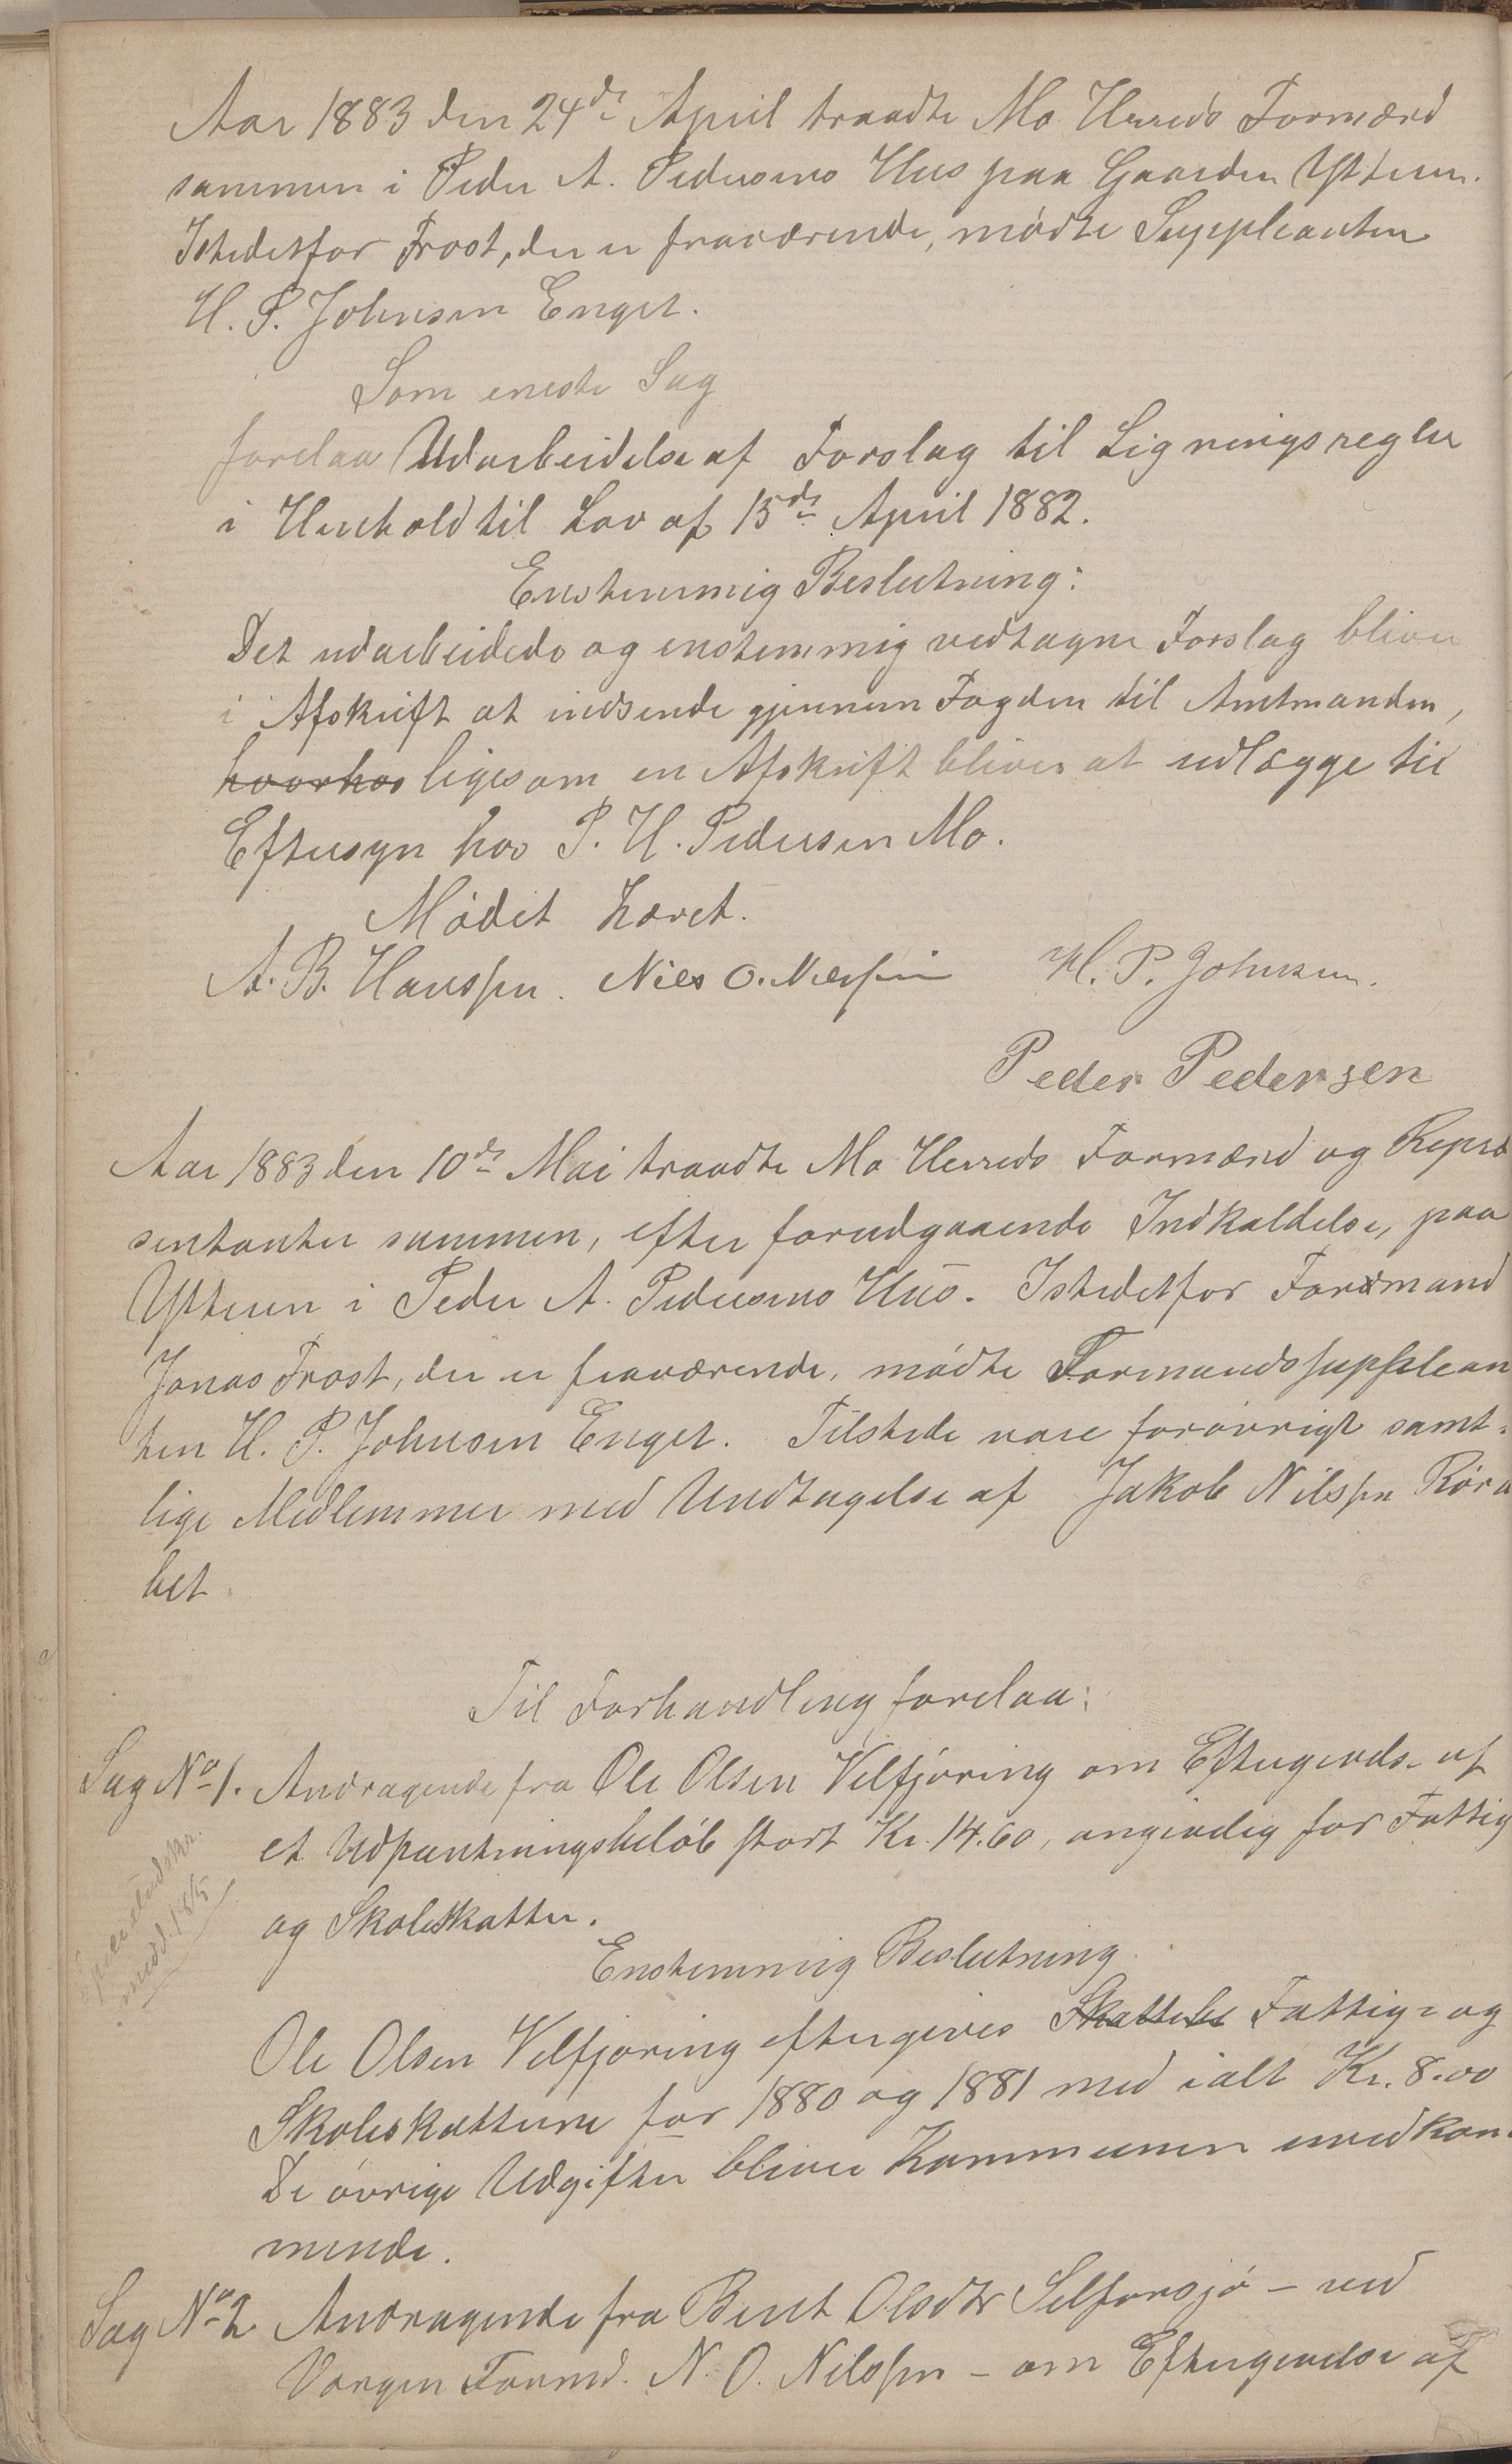 Aar 1883 den 24de April traadte Mo Herreds Formænd
sammen i Peder A. Pedersens Hus paa Gaarden Ytteren.
Istedetfor Frost, der er fraværende, mødte Suppleanten
H. P. Johnsen Enget.
Som eneste Sag
forelaa Udarbeidelse af Forslag til Ligningsregler
i Henhold til Lov af 15de April 1882.
Enstemmig Beslutning:
Det udarbeidede og enstemmig vedtagne Forslag bliver
i Afskrift at indsende gjennem Fogden til Amtmanden,
hvorhos ligesom en Afskrift bliver at udlægge til
Eftersyn hos P. H. Pedersen Mo.
Mødet hævet.
A. B. Hanssen. Nils O. Nilssen H. P. Johnsen.
Peder Pedersen
Aar 1883 den 10de Mai traadte Mo Herreds Formænd og Repræ
sentanter sammen, efter forudgaaende Indkaldelse, paa
Ytteren i Peder A. Pedersens Hus. Istedetfor Formand
Jonas Frost, der er fraværende, mødte Formandssupplean
ten H. P. Johnsen Enget. Tilstede vare forøvrigt samt-
lige Medlemmer med Undtagelse af Jakob Nilssen Røra
bet.
Til Forhandling forelaa:
Sag No 1. Andragende fra Ole Olsen Velfjøring om Eftergivelse af
et Udpantningsbeløb stort Kr. 14.60, angivelig for Fattig
og Skoleskatter.
Enstemmig Beslutning
Ole Olsen Velfjøring eftergives Skattebe Fattig- og
Skoleskatterne for 1880 og 1881 med ialt Kr. 8.00
De øvrige Udgifter bliver Kommunen uvedkom-
mende.
Sag No 2 Andragende fra Berit Olsdtr Selforsjø – ved
Vergen Formd. N. O. Nilssen – om Eftergivelse af